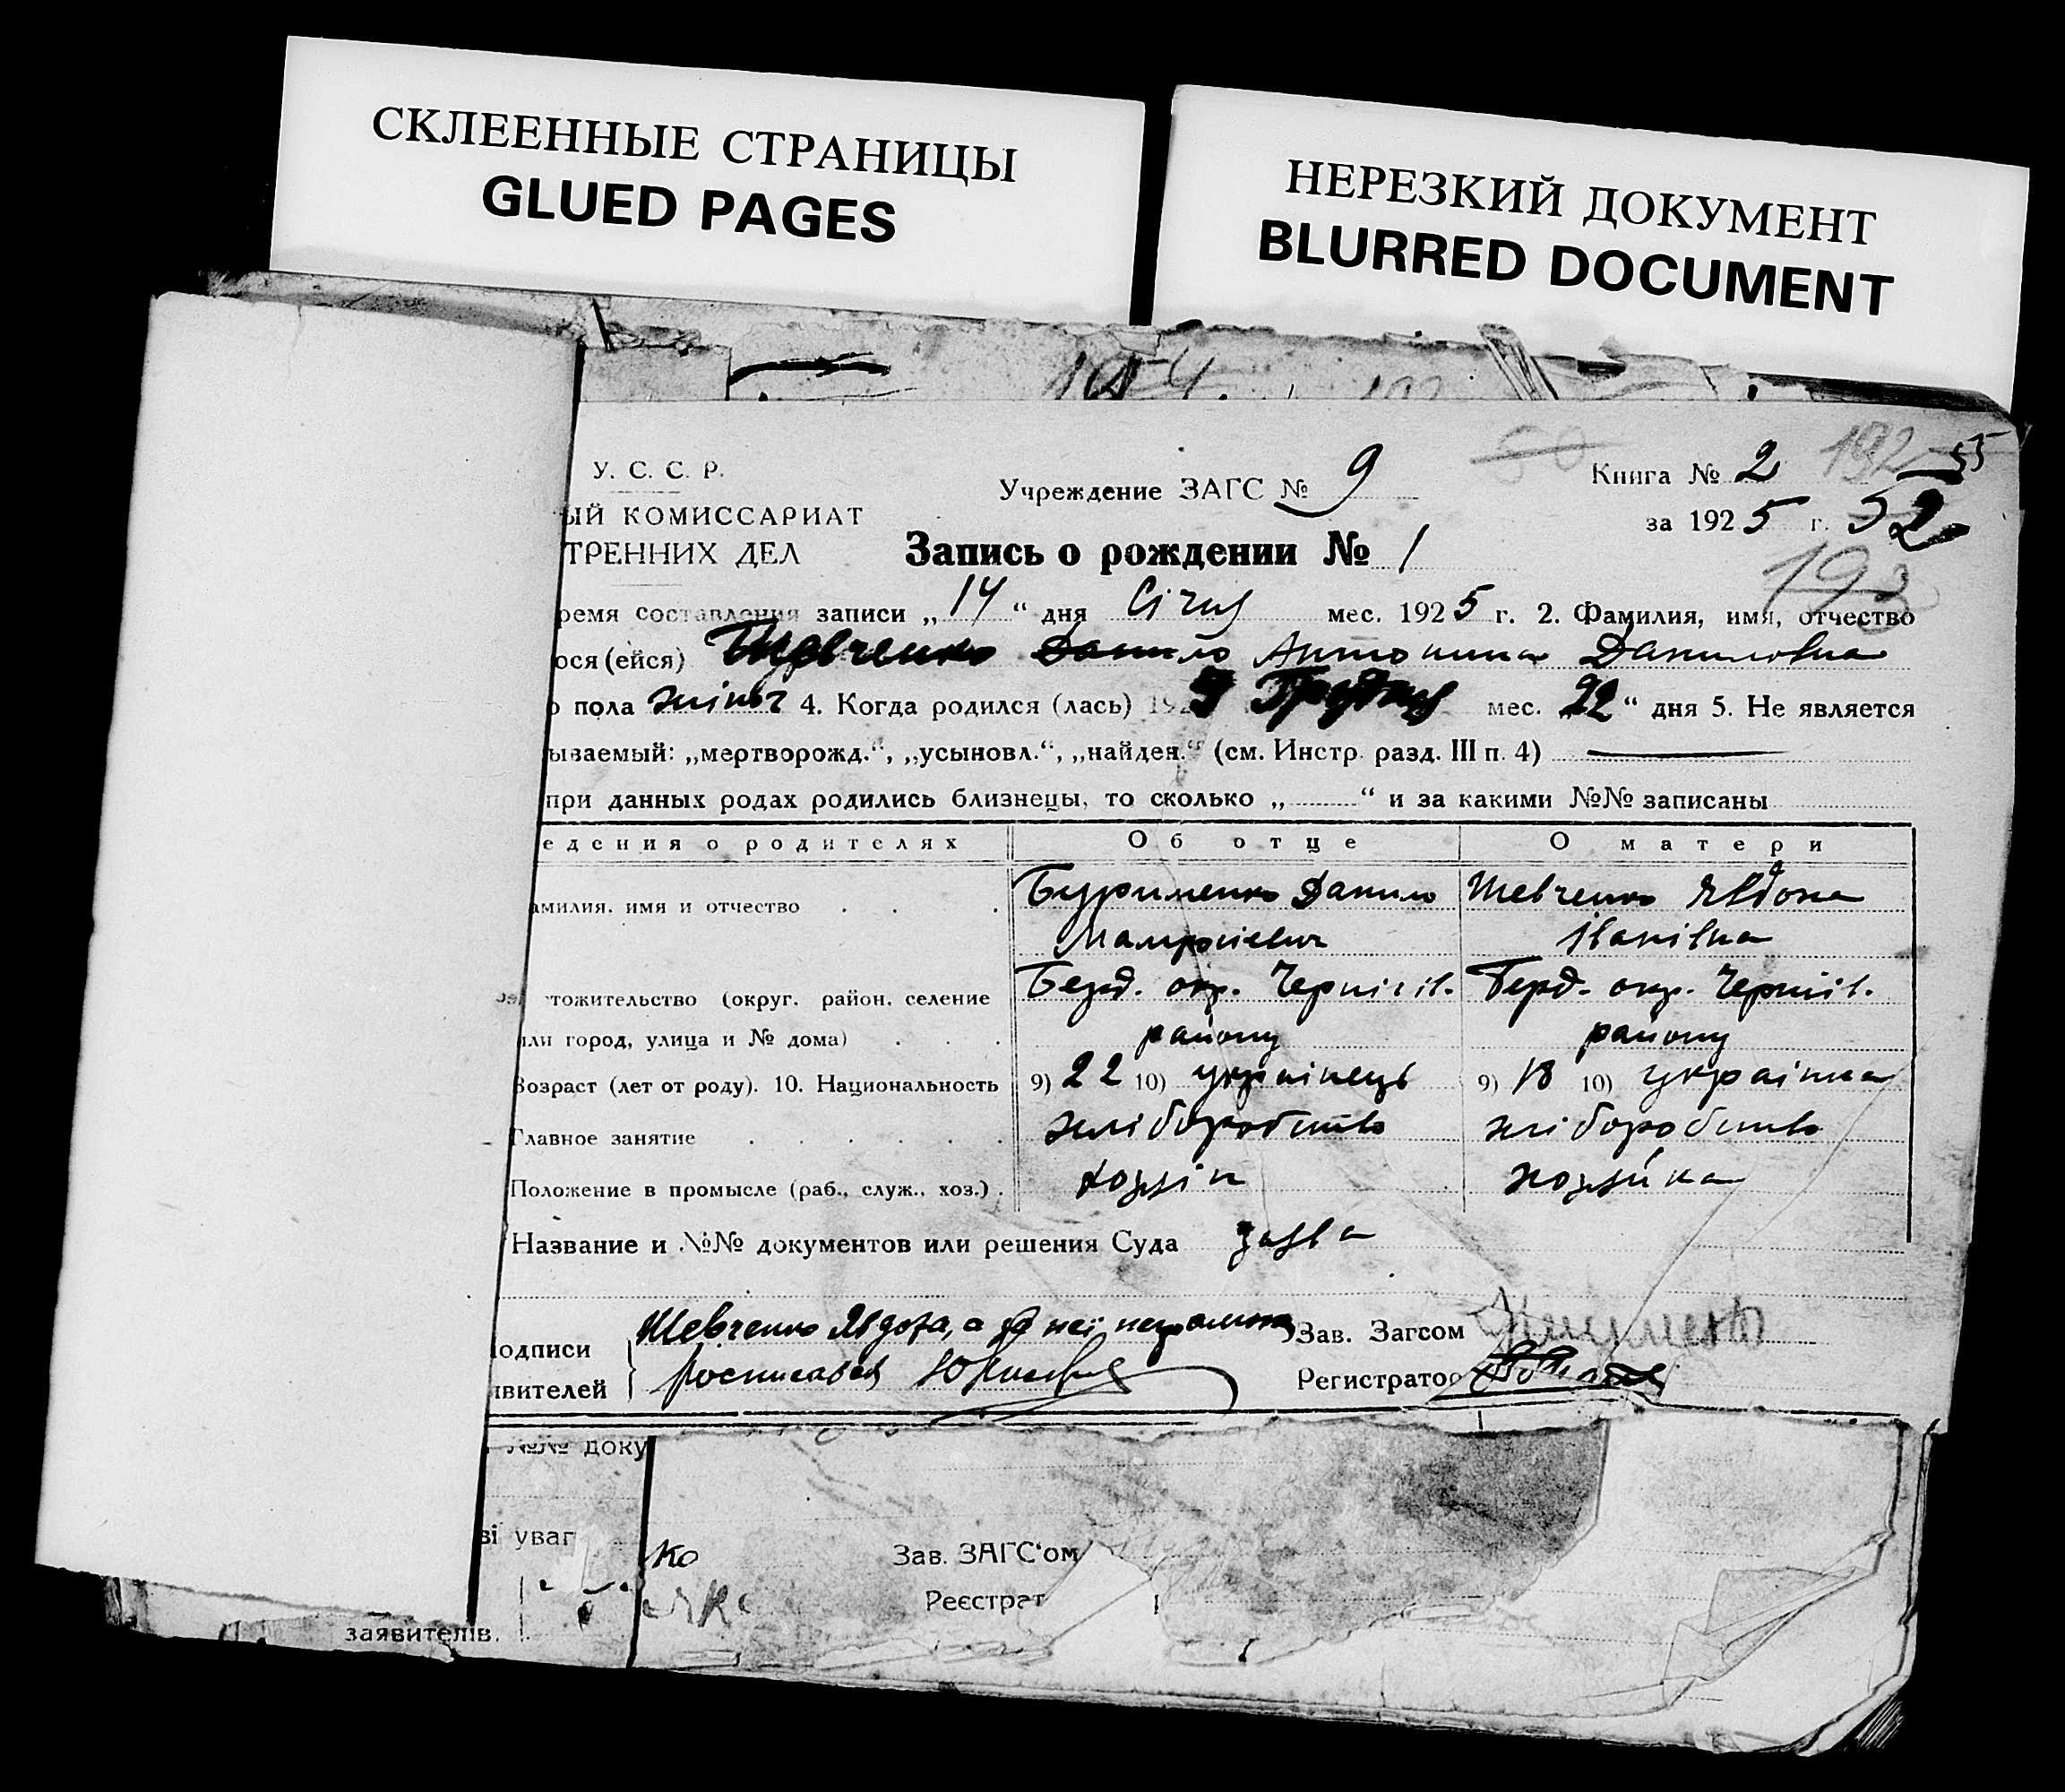 СКЛЕЕННЫЕ СТРАНИЦЫ
GLUED PAGES
НЕРЕЗКИЙ ДОКУМЕНТ
BLURRED DOCUMENT
У. С. С. Р.
ЫЙ КОМИССАРИАТ
ТРЕННИХ ДЕЛ
Учреждение ЗАГС № 9
Книга № 2
за 1925 г. 52
Запись о рождении № 1
ремя составления записи „14“ дня Січня мес. 1925 г. 2. Фамилия, имя, отчество
ося (ейся) Шевченко Данило Антонина Даниловна
о пола жіноч 4. Когда родился (лась) 192 Грудня мес. „22“ дня 5. Не является
ываемый: „мертворожд.“, „усыновл.“, „найден.“ (см. Инстр. разд. III п. 4)
при данных родах родились близнецы, то сколько „ “ и за какими №№ записаны
едения о родителях Об отце О матери
амилия. имя и отчество Буріменко Данило Шевченко Явдоха
Іванівна
тожительство (округ. район. селение Берд. окр. Чернігів. Берд. окр. Чернігів.
или город, улица и № дома) району району
Возраст (лет от роду). 10. Национальность 9) 22 10) українець 9) 18 10) українка
Главное занятие хліборобство хліборобство
Положение в промысле (раб., служ., хоз.). хозяїн хозяйка
Название и №№ документов или решения Суда заява
одписи Шевченко Явдоха, а за неї неграмотну Зав. Загсом
явителей росписався Регистратор
№№ доку
ві уваг
ко Зав. ЗАГС‘ом
Реєстрат
заявителів.